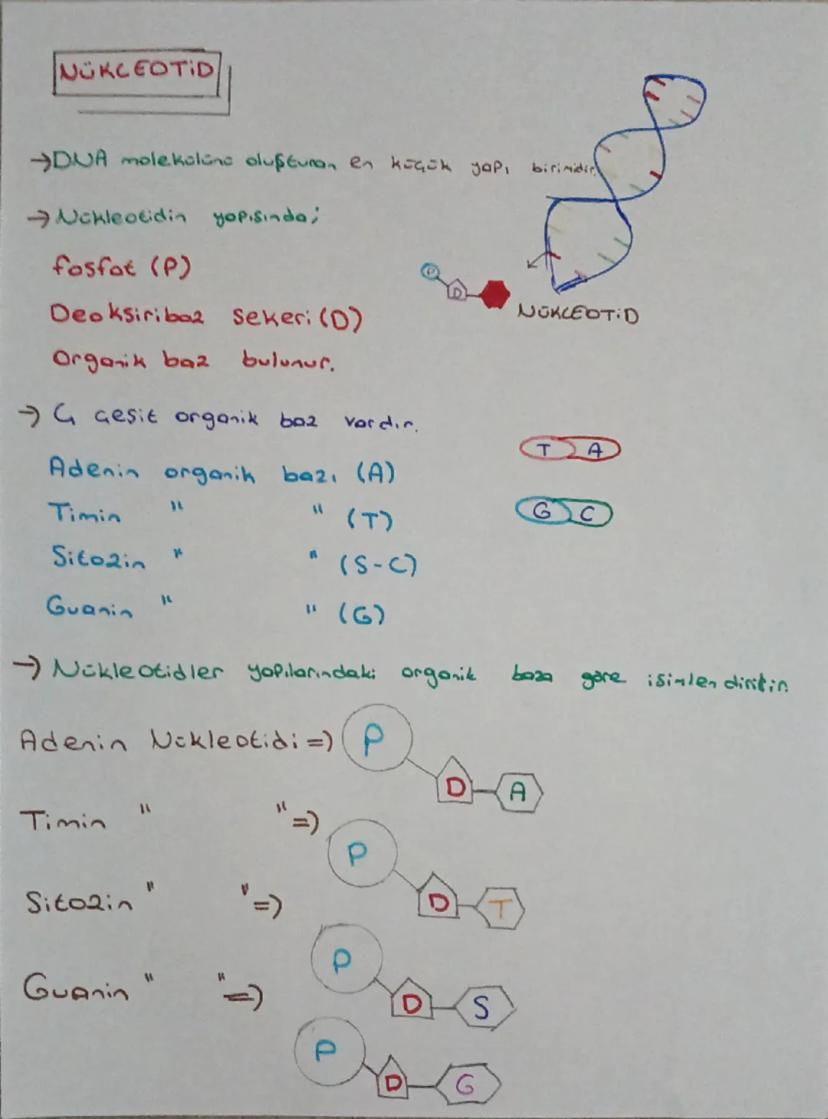 NÜKLEOTİD
→DNA molekülünü oluşturan en küçük yapı birimidir.
→Nükleotidin yapısında;
fosfat (P)
Deoksiriboz şekeri (D)
Organik baz bulunur.
P
D
NÜKLEOTİD
→ 4 çeşit organik baz vardır.
Adenin organik bazı (A)
Timin " " (T)
Sitozin " " (S-C)
Guanin " " (G)
T A
G C
→ Nükleotidler yapılarındaki organik baza göre isimlendirilir.
Adenin Nükleotidi =) P D A
Timin " " =) P D T
Sitozin " " =) P D S
Guanin " " =) P D G